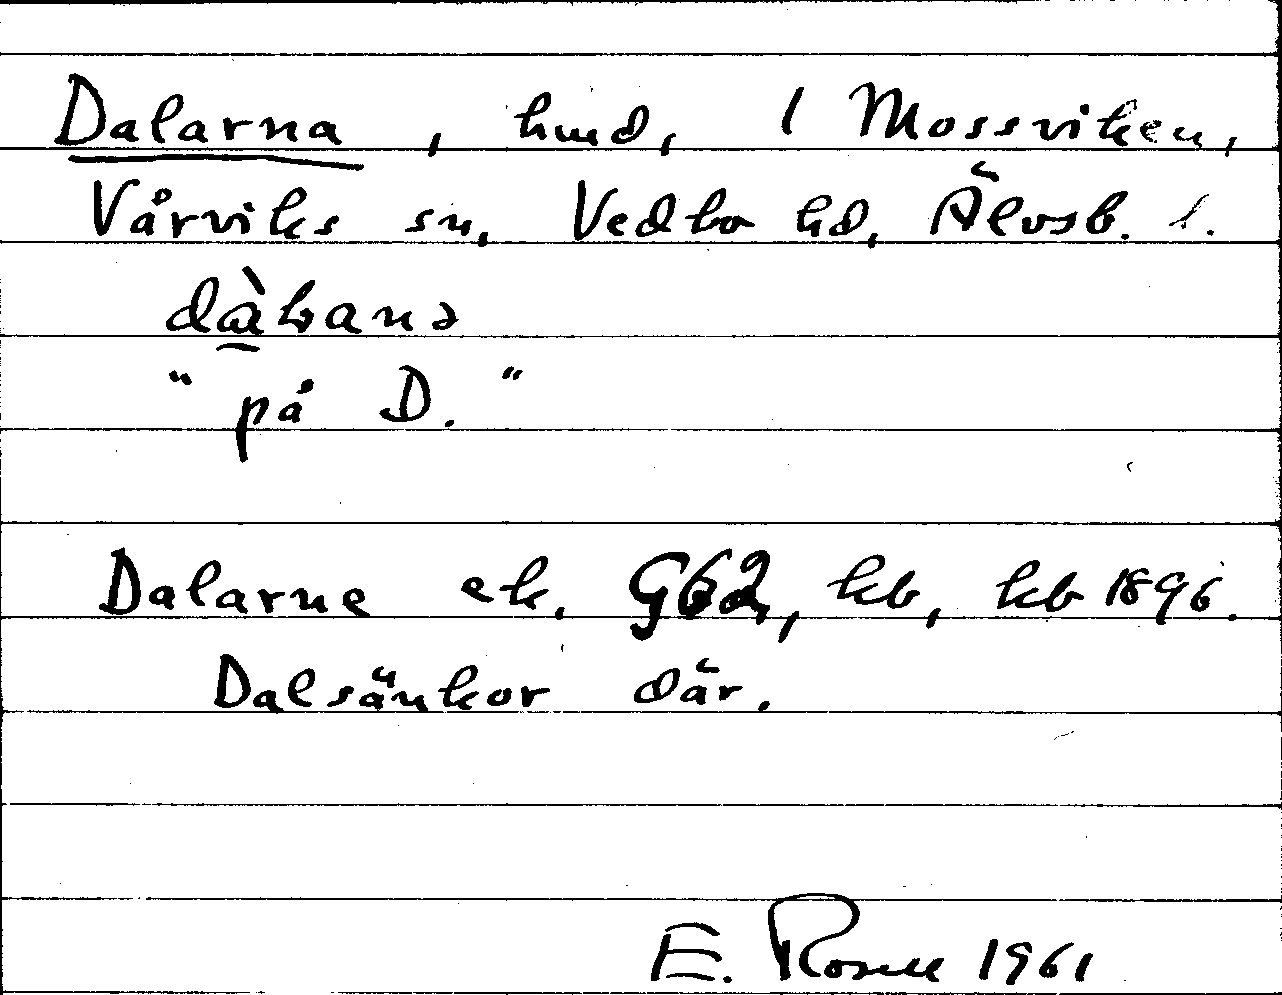 Dalarna, hmd, 1 Mossviken,
Vårviks sn, Vedbo hd, Älvsb. l.
dàƚanə
"på D."
Dalarne ek. G62, kb, kb 1896.
Dalsänkor där.
E. Rosell 1961